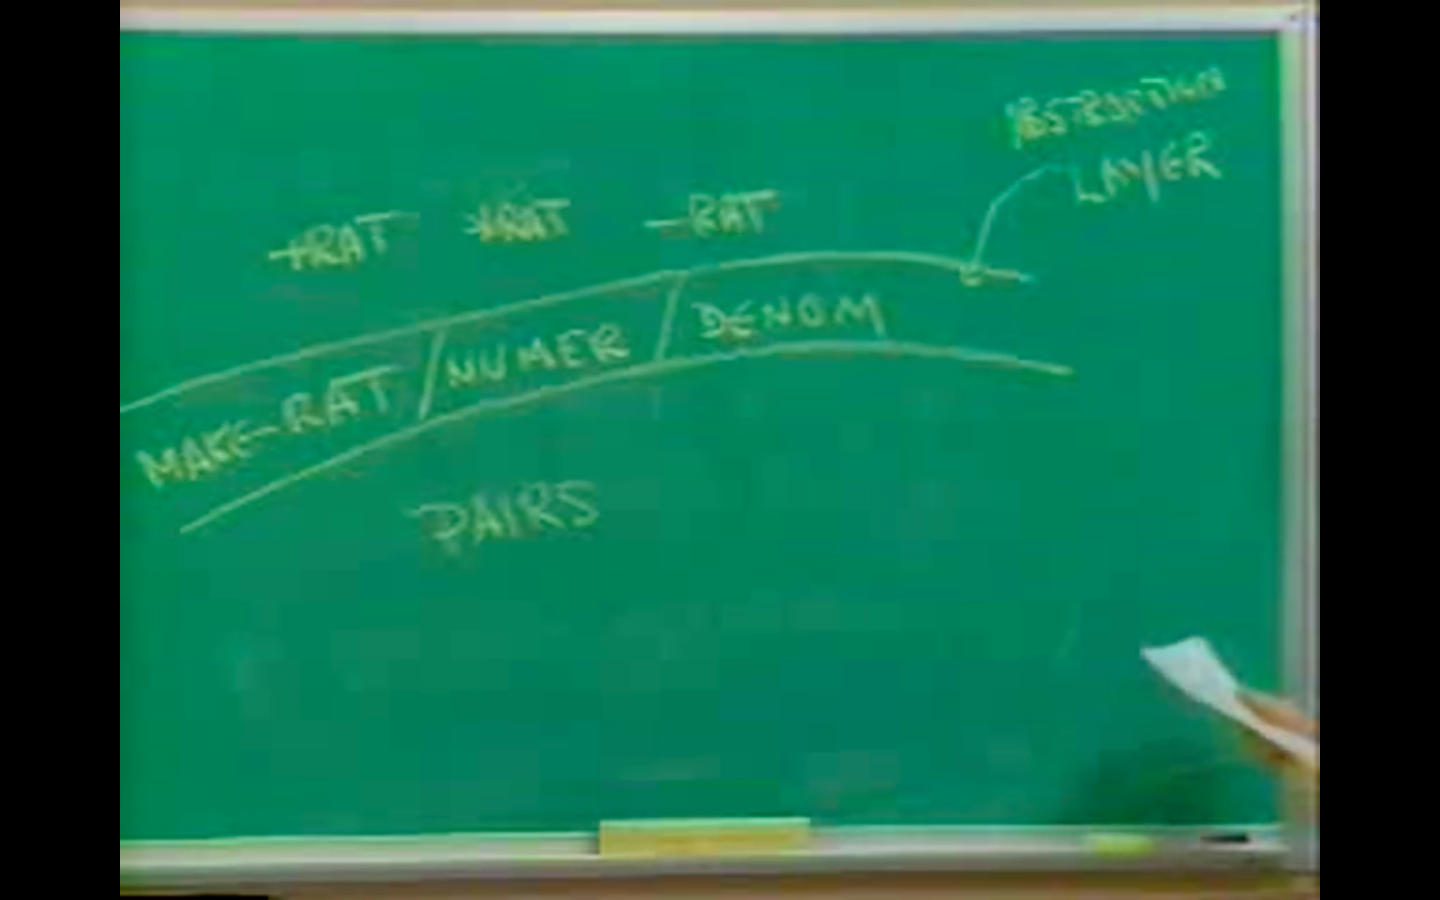 ABSTRACTION
LAYER
+RAT *RAT -RAT
MAKE-RAT / NUMER / DENOM
PAIRS